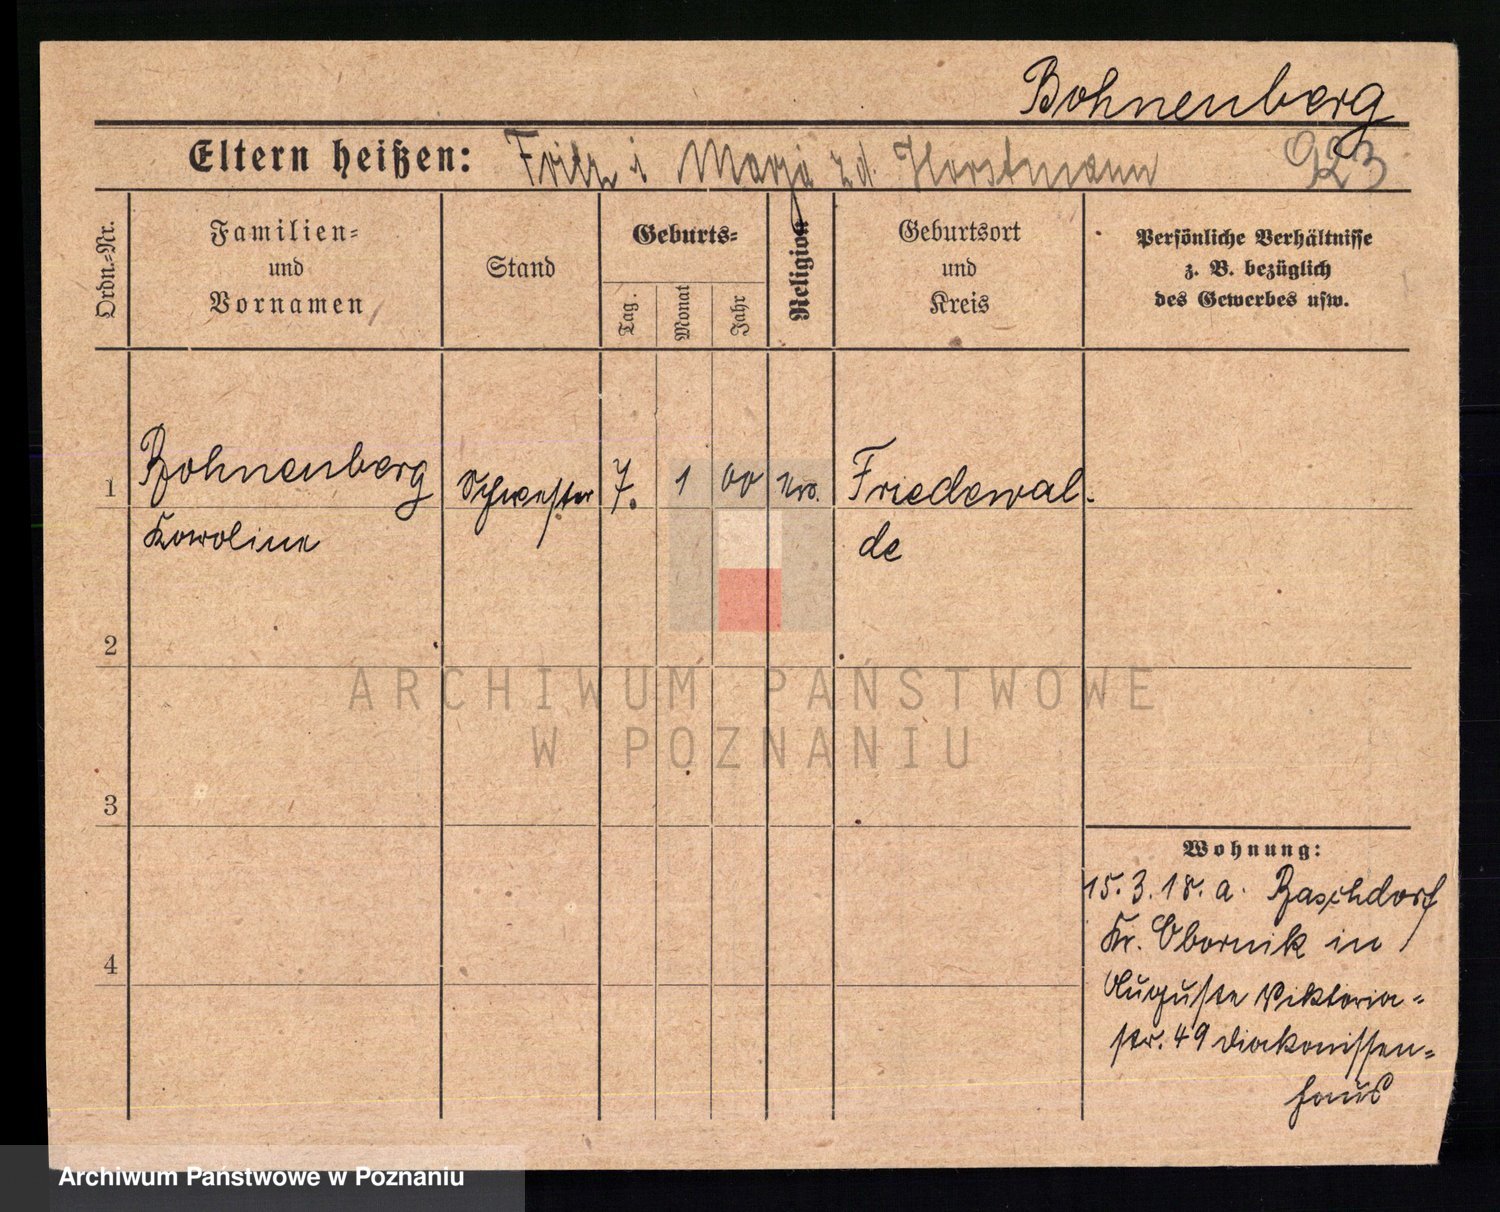 Bohnenberg
Eltern heißen: Fritz i Marja z d. Horstmann 923
Ordn.-Nr.
Familien-
und
Vornamen
Stand
Geburts-
Tag.
Monat
Jahr
Religion
Geburtsort
und
Kreis
Persönliche Verhältnisse
z. B. bezüglich
des Gewerbes usw.
1 Bohnenberg Schwester 7. 1 00 Friedewal-
Karoline de
2
3
4
Wohnung:
15. 3. 18. a. Baschdorf
Kr. Obornik in
Auguste Viktoria-
str. 49 Diakonissen-
haus
ARCHIWUM PAŃSTWOWE
W POZNANIU
Archiwum Państwowe w Poznaniu